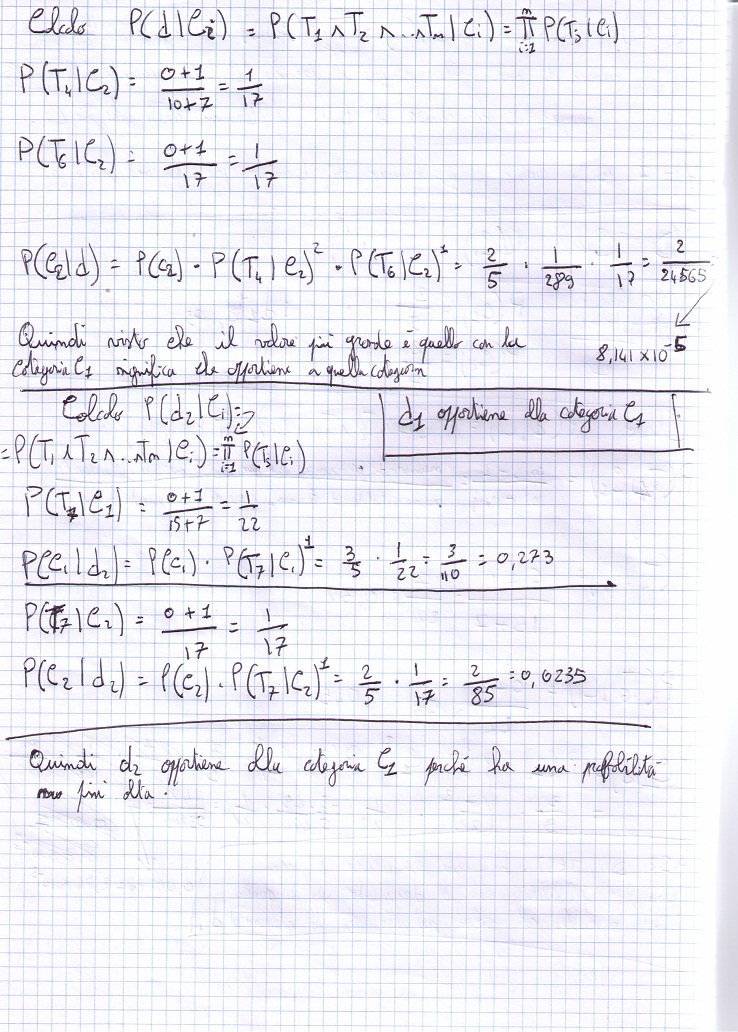 Calcolo P(d|Ci) = P(T1 ∧ T2 ∧ ... Tm|Ci) = ∏ i=1 m P(Tj|Ci)
P(T4|C2) = 0+1 / 10+7 = 1/17
P(T6|C2) = 0+1 / 17 = 1/17
P(C2|d) = P(c2) · P(T4|C2)^2 · P(T6|C2)^1 = 2/5 · 1/289 · 1/17 = 2/24565
8,141 × 10^-5
Quindi visto che il valore più grande è quello con la
categoria C1 significa che appartiene a quella categoria
Calcolo P(d2|Ci) =
d1 appartiene alla categoria C1
= P(T1 ∧ T2 ∧ ... Tm|Ci) = ∏ i=1 m P(Tj|Ci)
P(T7|C1) = 0+1 / 15+7 = 1/22
P(C1|d2) = P(c1) · P(T7|C1)^1 = 3/5 · 1/22 = 3/110 = 0,273
P(T7|C2) = 0+1 / 17 = 1/17
P(C2|d2) = P(C2) · P(T7|C2)^1 = 2/5 · 1/17 = 2/85 = 0,0235
Quindi d2 appartiene alla categoria C1 perché ha una probabilità
più alta.